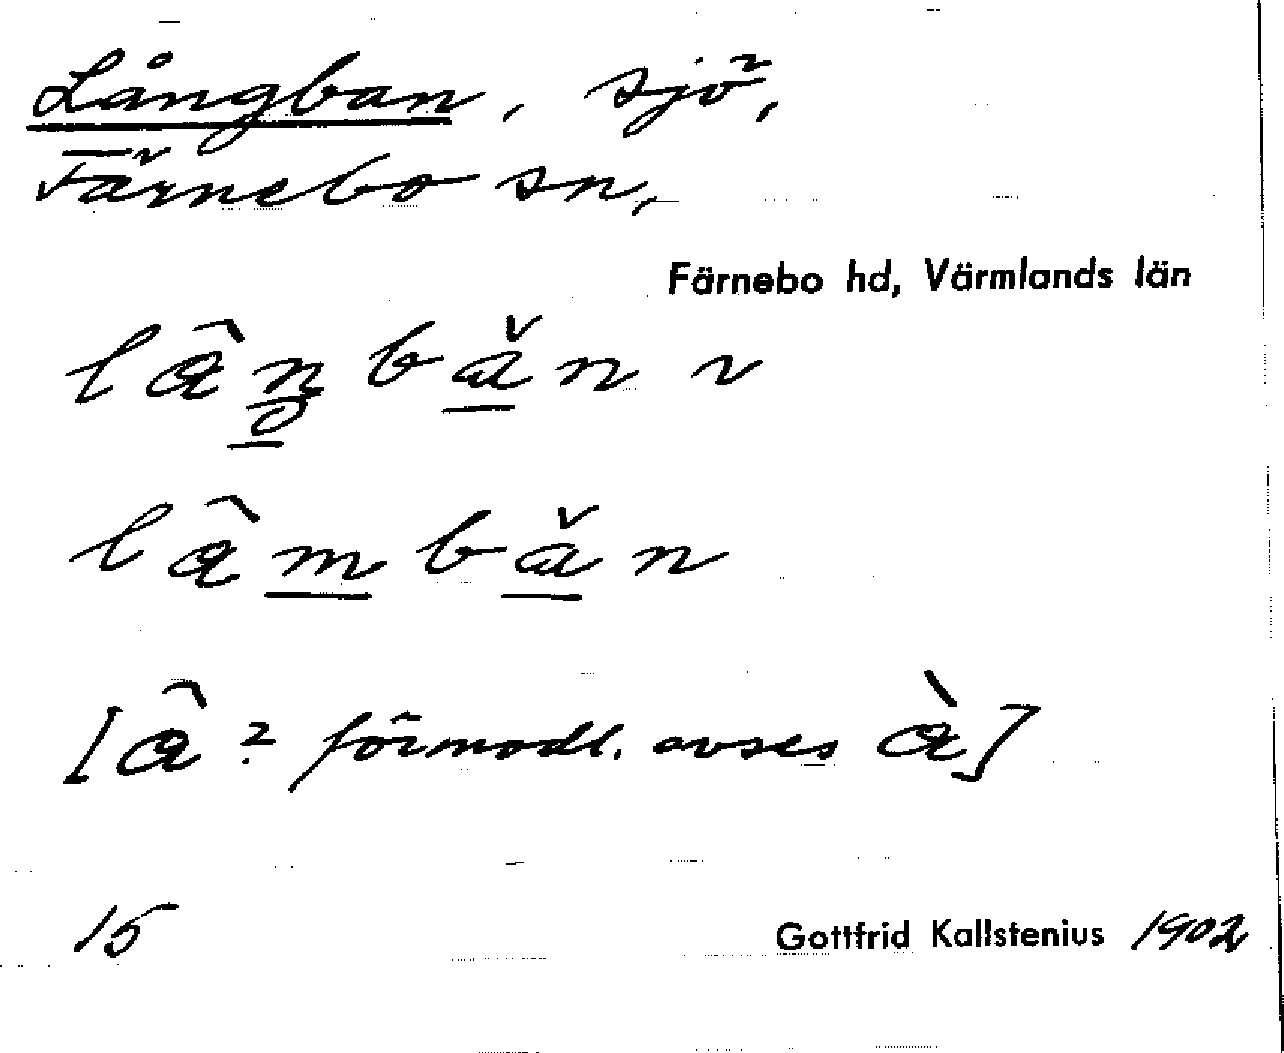 Långban, sjö,
Färnebo sn,
Färnebo hd, Värmlands län
lân̥bǎn ~
lâmbǎn
[â? förmodl. avses à]
15
Gottfrid Kallstenius 1902